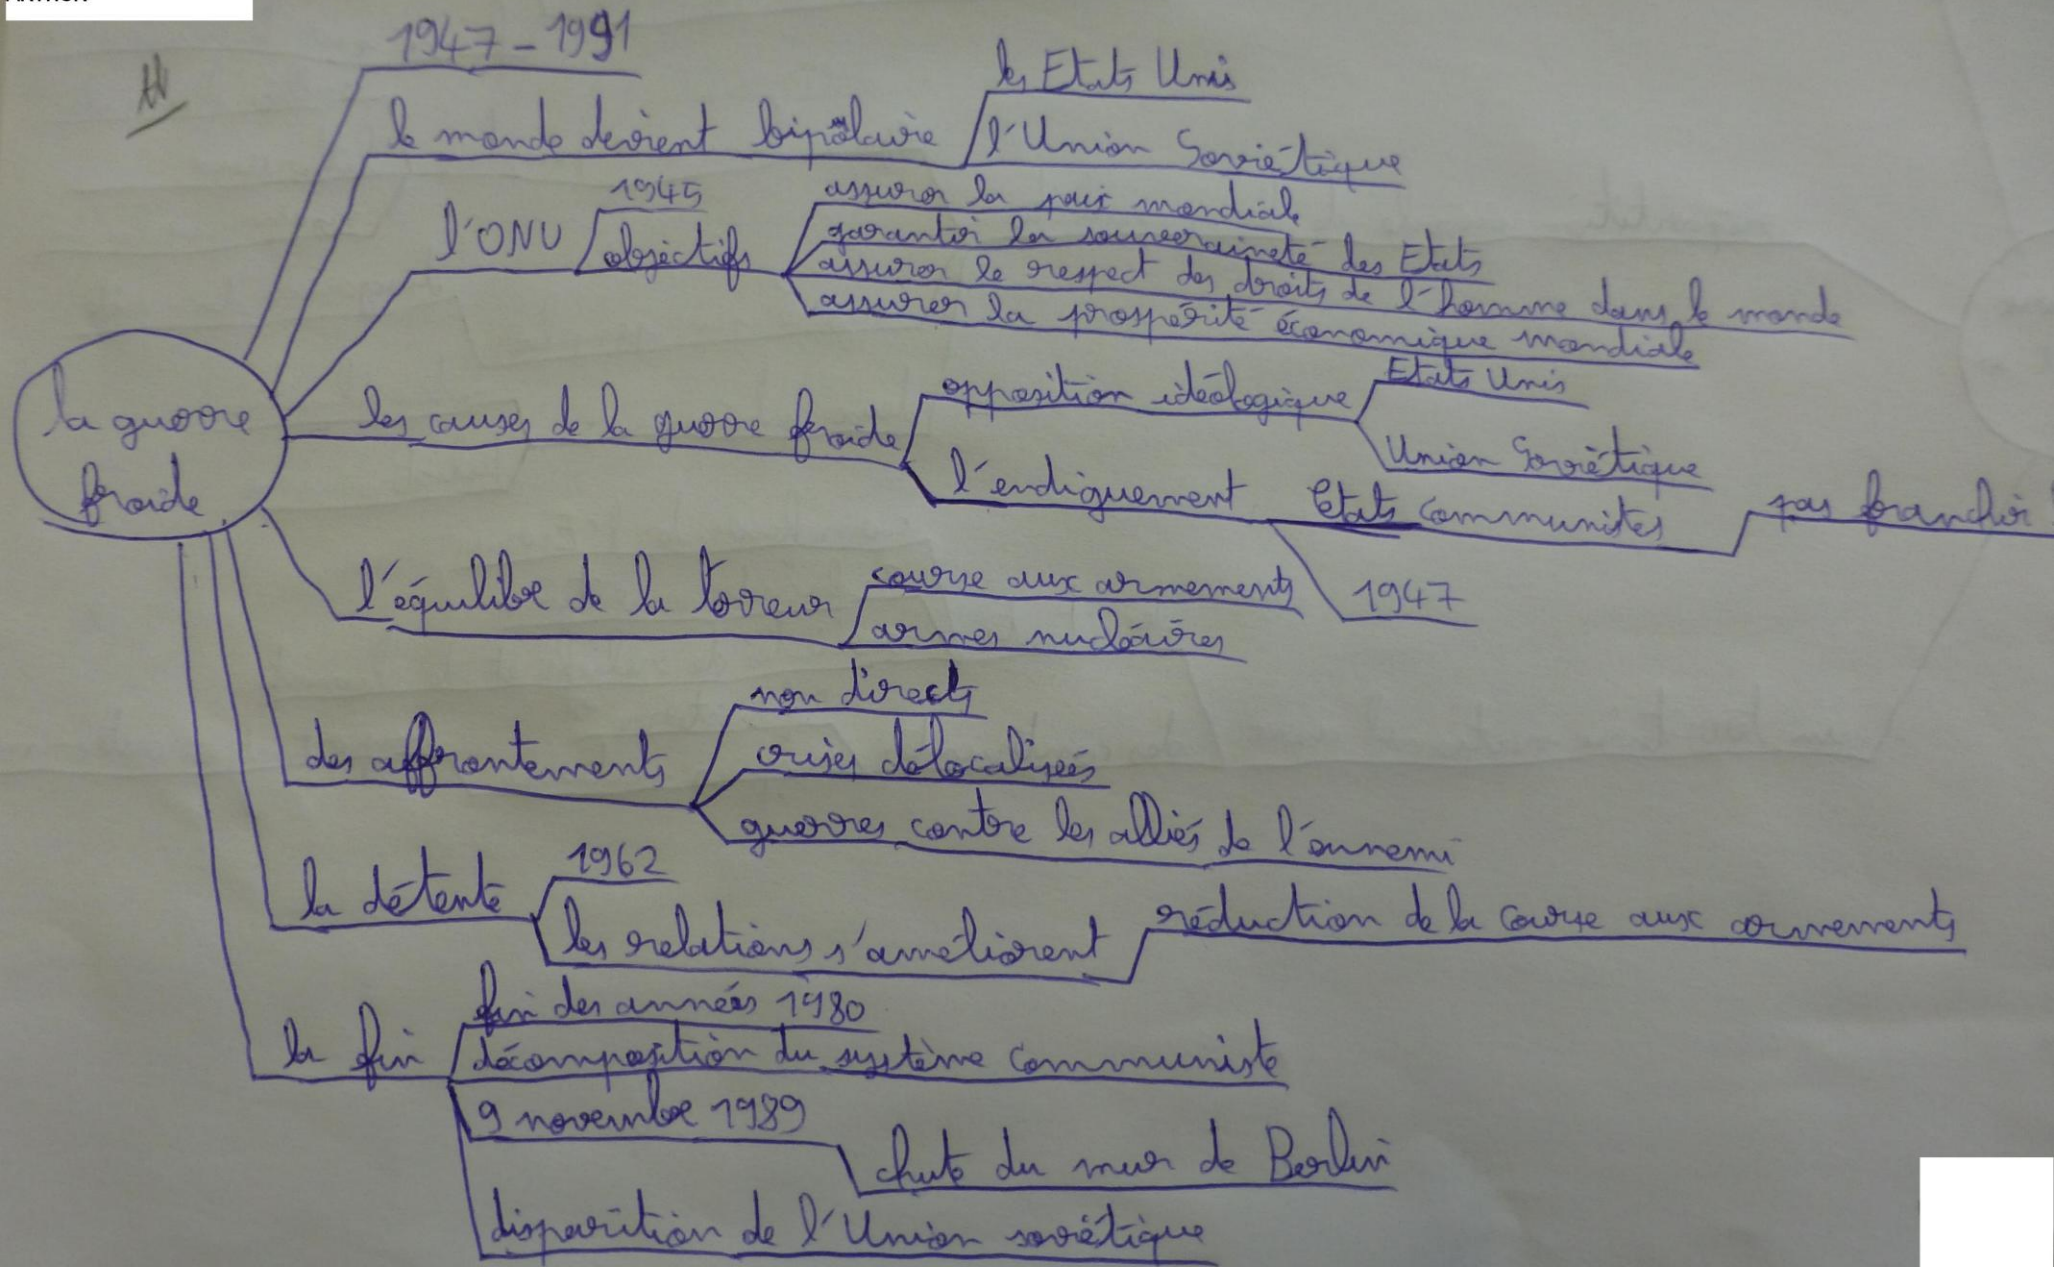 1947 - 1991
le monde devient bipolaire
les Etats Unis
l'Union Soviétique
l'ONU
1945
objectifs
assurer la paix mondiale
garantir la souveraineté des Etats
assurer le respect des droits de l'homme dans le monde
assurer la prospérité économique mondiale
la guerre
froide
les causes de la guerre froide
opposition idéologique
Etats Unis
Union Soviétique
l'endiguement
Etats communistes
pas franchir
1947
l'équilibre de la terreur
course aux armements
armes nucléaires
des affrontements
non directs
crises délocalisées
guerres contre les alliés de l'ennemi
la détente
1962
les relations s'améliorent
réduction de la course aux armements
la fin
fin des années 1980
décomposition du système communiste
9 novembre 1989
chute du mur de Berlin
disparition de l'Union soviétique